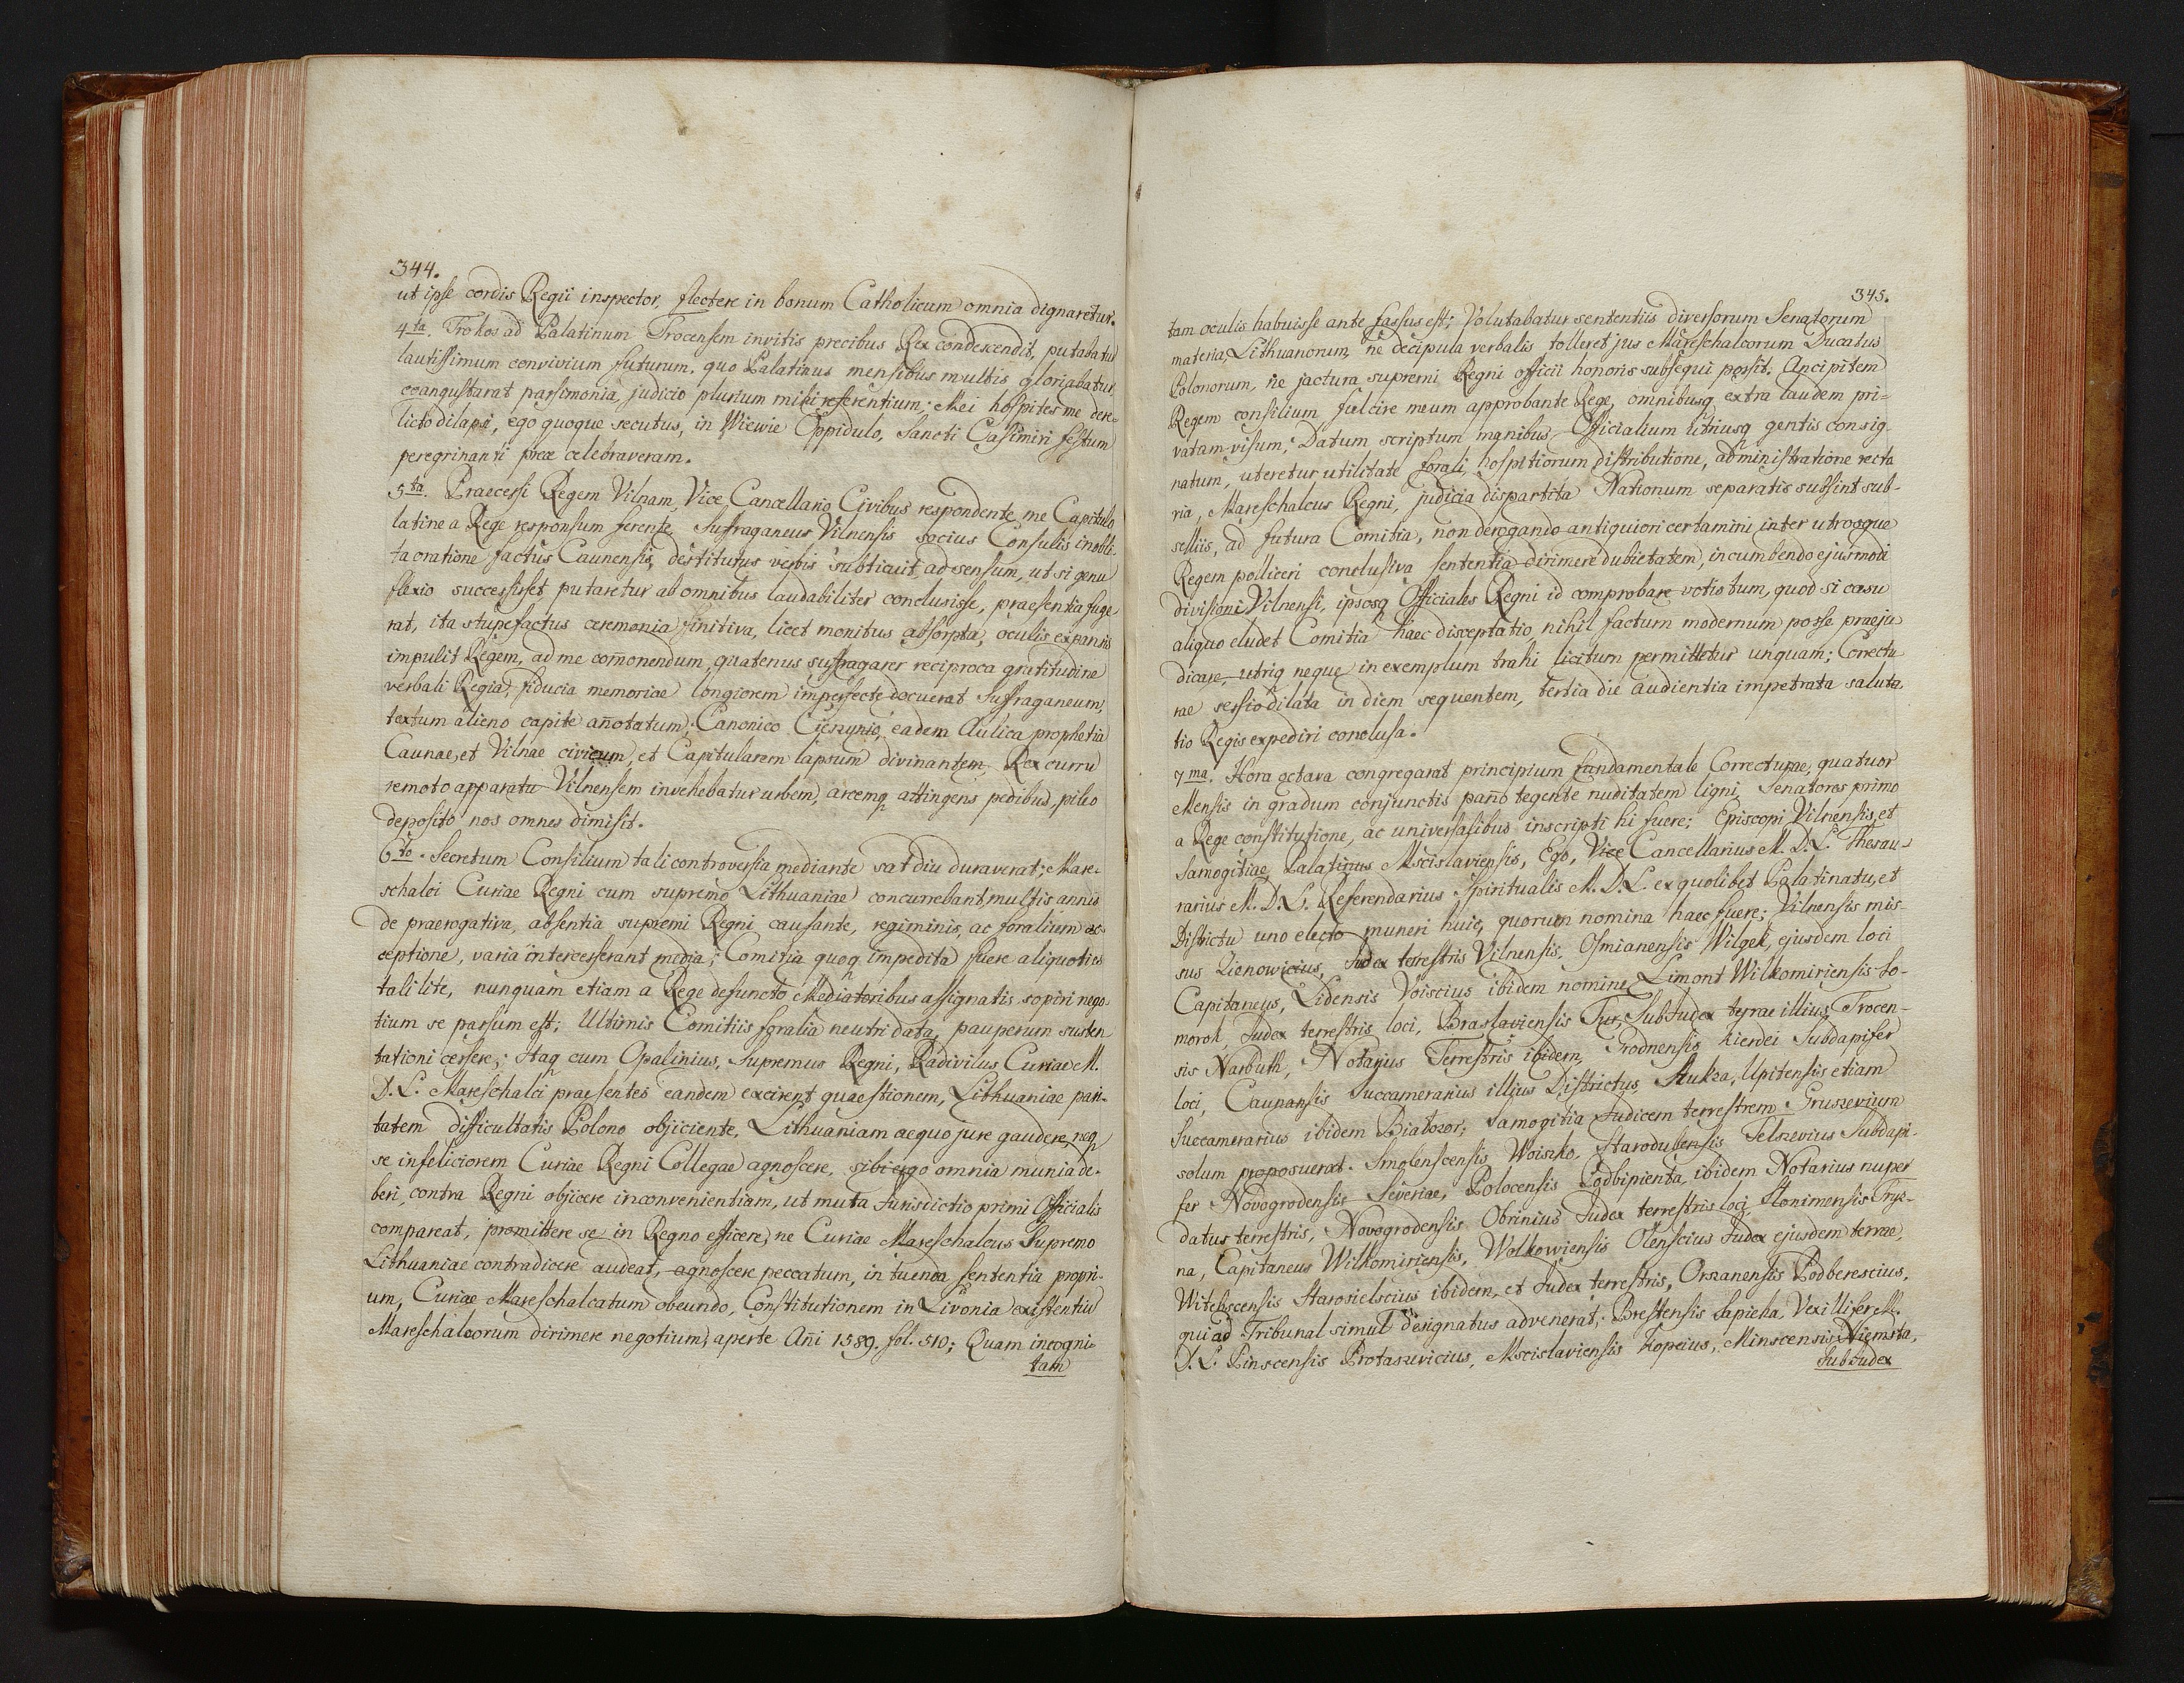 344.
ut ipse cordis Regii inspector, flectere in bonum Catholicum omnia dignaretur.
4ta. Trokos ad Palatinum Trocensem invitis precibus Rex condescendit, putabatur
lautissimum convivium futurum, quo Palatinus mensibus multis gloriabatur,
coangustarat parsimonia, judicio plurium mihi referentium; Mei hospites me dere-
licto dilapsi, ego quoque secutus, in Wiewie Oppidulo, Sancti Casimiri festum
peregrinanti prece celebraveram.
5ta. Praecessi Regem Vilnam, Vice Cancellario Civibus respondente, me Capitulo
latine a Rege responsum ferente, Suffraganeus Vilnensis socius Consulis inobli-
ta oratione factus Caunensis, destitutus verbis subticuit, ad sensum, ut si genu
flexio successisset, putaretur ab omnibus laudabiliter conclusisse, praesentia fuge
rat, ita stupefactus ceremonia finitiva, licet monitus absorpta, oculis expansis
impulit Regem, ad me com̃onendum, quatenus suffragarer reciproca gratitudine
verbali Regia, fiducia memoriae longiorem imperfecte docuerat Suffraganeum,
textum alieno capite añotatum; Canonico Cieszynio, eadem Aulica prophetia
Caunae, et Vilnae civicum, et Capitularem lapsum divinantem, Rex curru
remoto apparatu Vilnensem invehebatur urbem, arcemq attingens pedibus, pileo
deposito nos omnes dimisit.
6to. Secretum Consilium tali controversia mediante sat diu duraverat; Mare-
schalci Curiae Regni cum supremo Lithuaniae concurrebant multis annis
de praerogativa, absentia supremi Regni causante, regiminis, ac foralium ac-
ceptione, varia intercesserant media; Comitia quoq impedita fuere aliquoties
tali lite, nunquam etiam a Rege defuncto Mediatoribus assignatis sopiri nego-
tium se passum est; Ultimis Comitiis foralia neutri data, pauperum susten
tationi cessere; Itaq cum Opalinius, Supremus Regni, Radivilus Curiae M.
D. L. Mareschalci praesentes eandem excirent quaestionem, Lithuaniae pari-
tatem difficultatis Polono objiciente, Lithuaniam aequo jure gaudere, neq
se infeliciorem Curiae Regni Collegae agnoscere, sibi ergo omnia munia de-
beri, contra Regni objicere inconvenientiam, ut muta Jurisdictio primi Officialis
compareat, promittere se in Regno efficere, ne Curiae Mareschalcus Supremo
Lithuaniae contradicere audeat, agnoscere peccatum, in tuenda sententia propri-
um, Curiae Mareschalcatum obeundo, Constitutionem in Livonia existentiu
Mareschalcorum dirimere negotium, aperte Añi 1589. fol. 510; Quam incogni-
tam
345.
tam oculis habuisse ante fassus est; Volutabatur sententiis diversorum Senatorum
materia, Lithuanorum, ne decipula verbalis tolleret jus Mareschalcorum Ducatus
Polonorum, ne jactura supremi Regni officii honoris subsequi possit. Ancipitem
Regem consilium fulcire meum approbante Rege, omnibusq extra laudem pri-
vatam visum, Datum scriptum manibus Officialium utriusq gentis consig-
natum, uteretur utilitate forali, hospitiorum distributione, administratione recta
ria, Mareschalcus Regni, judicia dispartita Nationum separatis subsint sub-
selliis, ad futura Comitia, non derogando antiquiori certamini inter utrosque
Regem polliceri conclusiva sententia dirimere dubietatem, incumbendo ejusmodi
divisioni Vilnensi, ipsosq Officiales Regni id comprobare votis tum, quod si casu
aliquo eludet Comitia haec disceptatio, nihil factum modernum posse praeju
dicare utriq neque in exemplum trahi licitum permittetur unquam; Correctu
rae sessio dilata in diem sequentem, tertia die audientia impetrata saluta
tio Regis expediri conclusa.
7ma. Hora octava congregarat principium fundamentale Correcturae, quatuor
Mensis in gradum conjunctis pañno tegente nuditatem ligni, Senatores primo
a Rege constitutione, ac universalibus inscripti hi fuere; Episcopi Vilnensis, et
Samogitiae, Palatinus Mscislaviensis, Ego, Vice Cancellarius M. D. L. Thesau-
rarius M. D. L. Referendarius Spiritualis M. D. L. ex quolibet Palatinatu, et
Districtu uno electo muneri huic, quorum nomina haec fuere; Vilnensis mis-
sus Zienowicius, Judex terrestris Vilnensis, Osmianensis Wilgek, ejusdem loci
Capitaneus, Lidensis Voiscius ibidem nomine Limont Wilkomiriensis So-
morok, Judex terrestris loci, Braslaviensis Tur, SubJudex terrae illius, Trocen-
sis Narbuth, Notarius Terrestris ibidem, Grodnensis Kierdei Subdapifer
loci, Caunansis Succamerarius illius Districtus, Stukza, Upitensis etiam
Succamerarius ibidem Białozor; Samogitia Judicem terrestrem Gruszevium
solum proposuerat. Smolenscensis Woiszko. Starodubensis Telszevius Subdapi-
fer Novogrodensis Severiae, Polocensis Podbipienta, ibidem Notarius nuper
datus terrestris, Novogrodensis Obrinius Judex terrestris loci, Slonimensis Tryz-
na, Capitaneus Wilkomiriensis, Wolkowiensis Olenscius Judex ejusdem terrae,
Witebscensis Starosielscius ibidem, et Judex terrestris, Orszanensis Podberescius,
qui ad Tribunal simul designatus advenerat; Brestensis Sapieha, Vexillifer M.
D. L. Pinscensis Protaszvicius, Mscislaviensis Kopcius, Minscensis Niemsta,
SubJudex